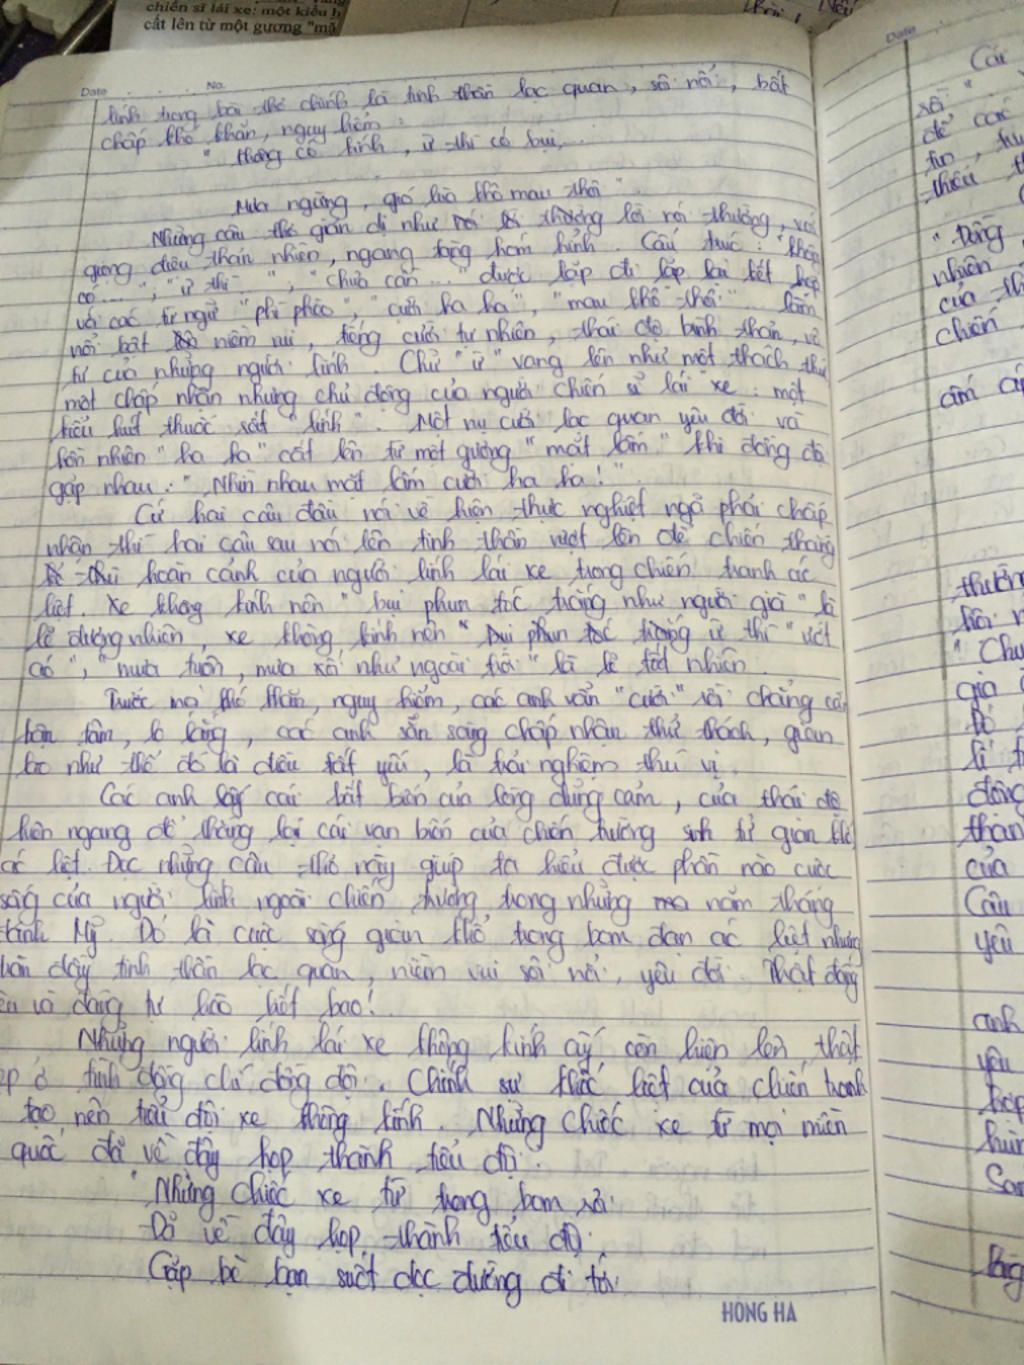 chiến sĩ lái xe: một kiểu h
cất lên từ một gương "mặ
Date No.
lính trong bài thơ chính là tinh thần lạc quan, sôi nổi, bất
chấp khó khăn, nguy hiểm:
" Không có kính, ừ thì có bụi,
Mưa ngừng, gió lùa khô mau thôi".
Những câu thơ giản dị như lời nói thường, với
giọng điệu thản nhiên, ngang tàng hóm hỉnh. Cấu trúc: "không
có..."; "ừ thì..", "chưa cần..." được lặp đi lặp lại kết hợp
với các từ ngữ "phì phèo", "cười ha ha", "mau khô thôi" làm
nổi bật niềm vui, tiếng cười tự nhiên, thái độ bình thản, vô
tư của những người lính. Chữ "ừ" vang lên như một thách thức
một chấp nhận nhưng chủ động của người chiến sĩ lái xe: một
kiểu hút thuốc rất "lính". Một nụ cười lạc quan yêu đời và
hồn nhiên "ha ha" cất lên từ một gương "mặt lấm" khi đồng đội
gặp nhau: "Nhìn nhau mặt lấm cười ha ha!"
Cứ hai câu đầu nói về hiện thực nghiệt ngã phải chấp
nhận thì hai câu sau nói lên tinh thần vượt lên để chiến thắng
hoàn cảnh của người lính lái xe trong chiến tranh ác
liệt. Xe không kính nên "bụi phun tóc trắng như người già" là
lẽ đương nhiên, xe không kính nên "bụi phun tóc trắng ừ thì "ướt
áo", "mưa tuôn, mưa xối như ngoài trời" là lẽ tất nhiên.
Trước mọi khó khăn, nguy hiểm, các anh vẫn "cười" rồi chẳng cần
bận tâm, lo lắng, các anh sẵn sàng chấp nhận thử thách, gian
lao như thế đó là điều tất yếu, là trải nghiệm thú vị.
Các anh lấy cái bất biến của lòng dũng cảm, của thái độ
hiên ngang để thắng lại cái vạn biến của chiến trường sinh tử gian khổ
ác liệt. Đọc những câu thơ này giúp ta hiểu được phần nào cuộc
sống của người lính ngoài chiến trường trong những năm tháng
đánh Mỹ. Đó là cuộc sống gian khổ trong bom đạn ác liệt nhưng
tràn đầy tinh thần lạc quan, niềm vui sôi nổi, yêu đời. Thật đáng
yêu và đáng tự hào biết bao!
Những người lính lái xe không kính ấy còn hiện lên thật
đẹp ở tình đồng chí đồng đội. Chính sự khốc liệt của chiến tranh
tạo nên tiểu đội xe không kính. Những chiếc xe từ mọi miền
quốc đã về đây họp thành tiểu đội:
"Những chiếc xe từ trong bom rơi
Đã về đây họp thành tiểu đội
Gặp bè bạn suốt dọc đường đi tới
HONG HA
Date
Cái
xối"
để các
tin,
thiếu
"Dòng
nhiên
của
chiến
ấm áp
thường
hồi
"Chu
già
đồng
thàn
của
Câu
yêu
anh
yêu
hợp
hùn